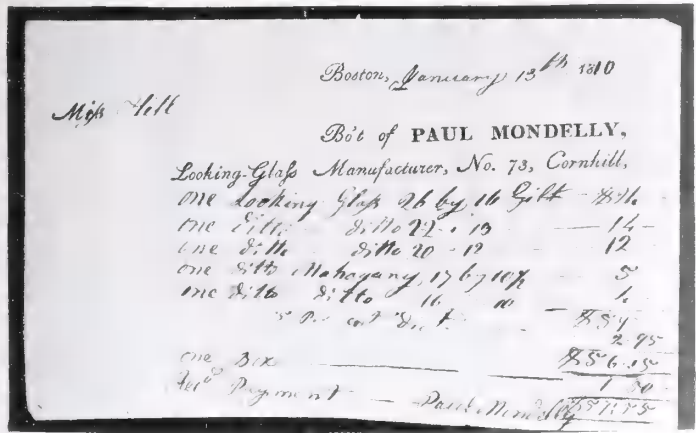 Boston, January 13th 1810
Miss Hill
Bo't of PAUL MONDELLY,
Looking-Glass Manufacturer, No. 73, Cornhill,
one Looking Glass 26 by 16 Gilt
one Ditto ditto 22 - 13 — 14 -
one ditto ditto 20 - 12 12
one ditto Mahogany, 17 by 10½ — 5
one ditto ditto 16 10
5 Per cent Disct.
2.95
one Box
1 50
Rec'd Payment — Paul Mondelly